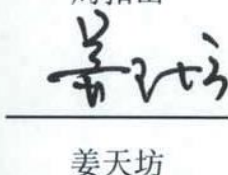 姜天坊
姜天坊